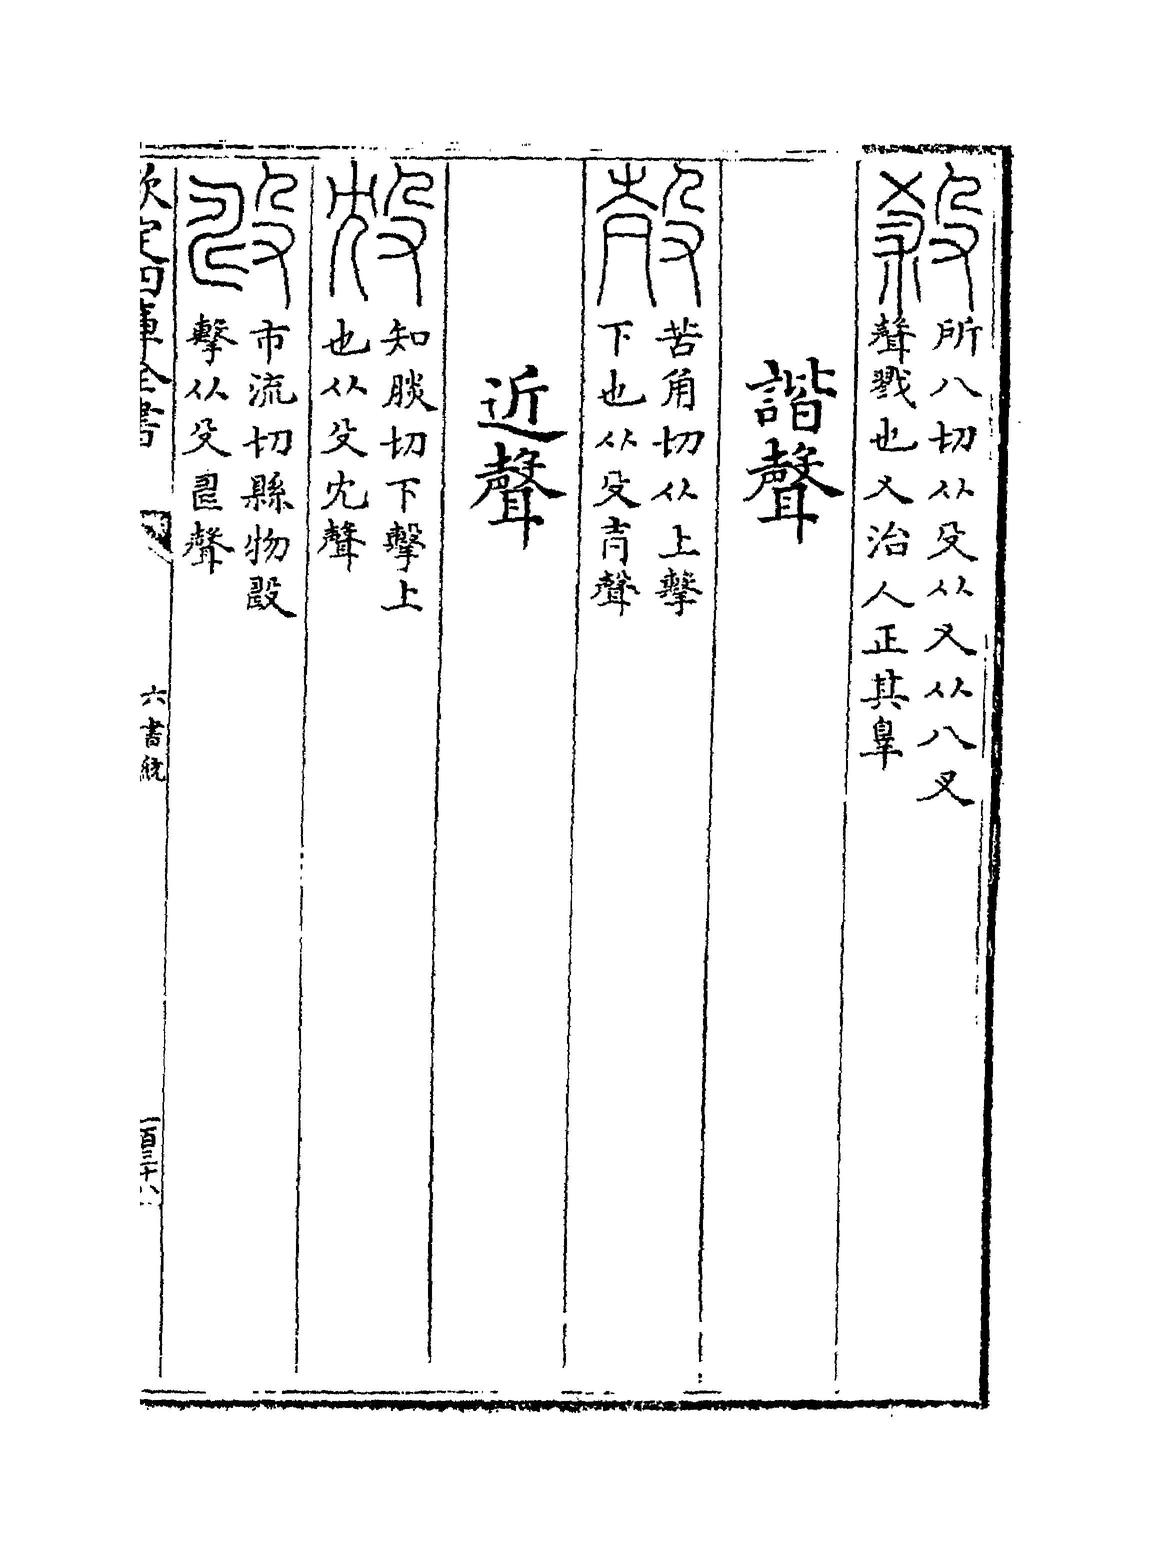 殺
所八切从殳从乂从八叉
聲戮也乂治人正其辠
諧聲
㱿
苦角切从上擊
下也从殳青聲
近聲
㱽
知朕切下擊上
也从殳冘聲
市流切縣物
擊从殳聲
欽定四庫全書
六書統
一百三十八